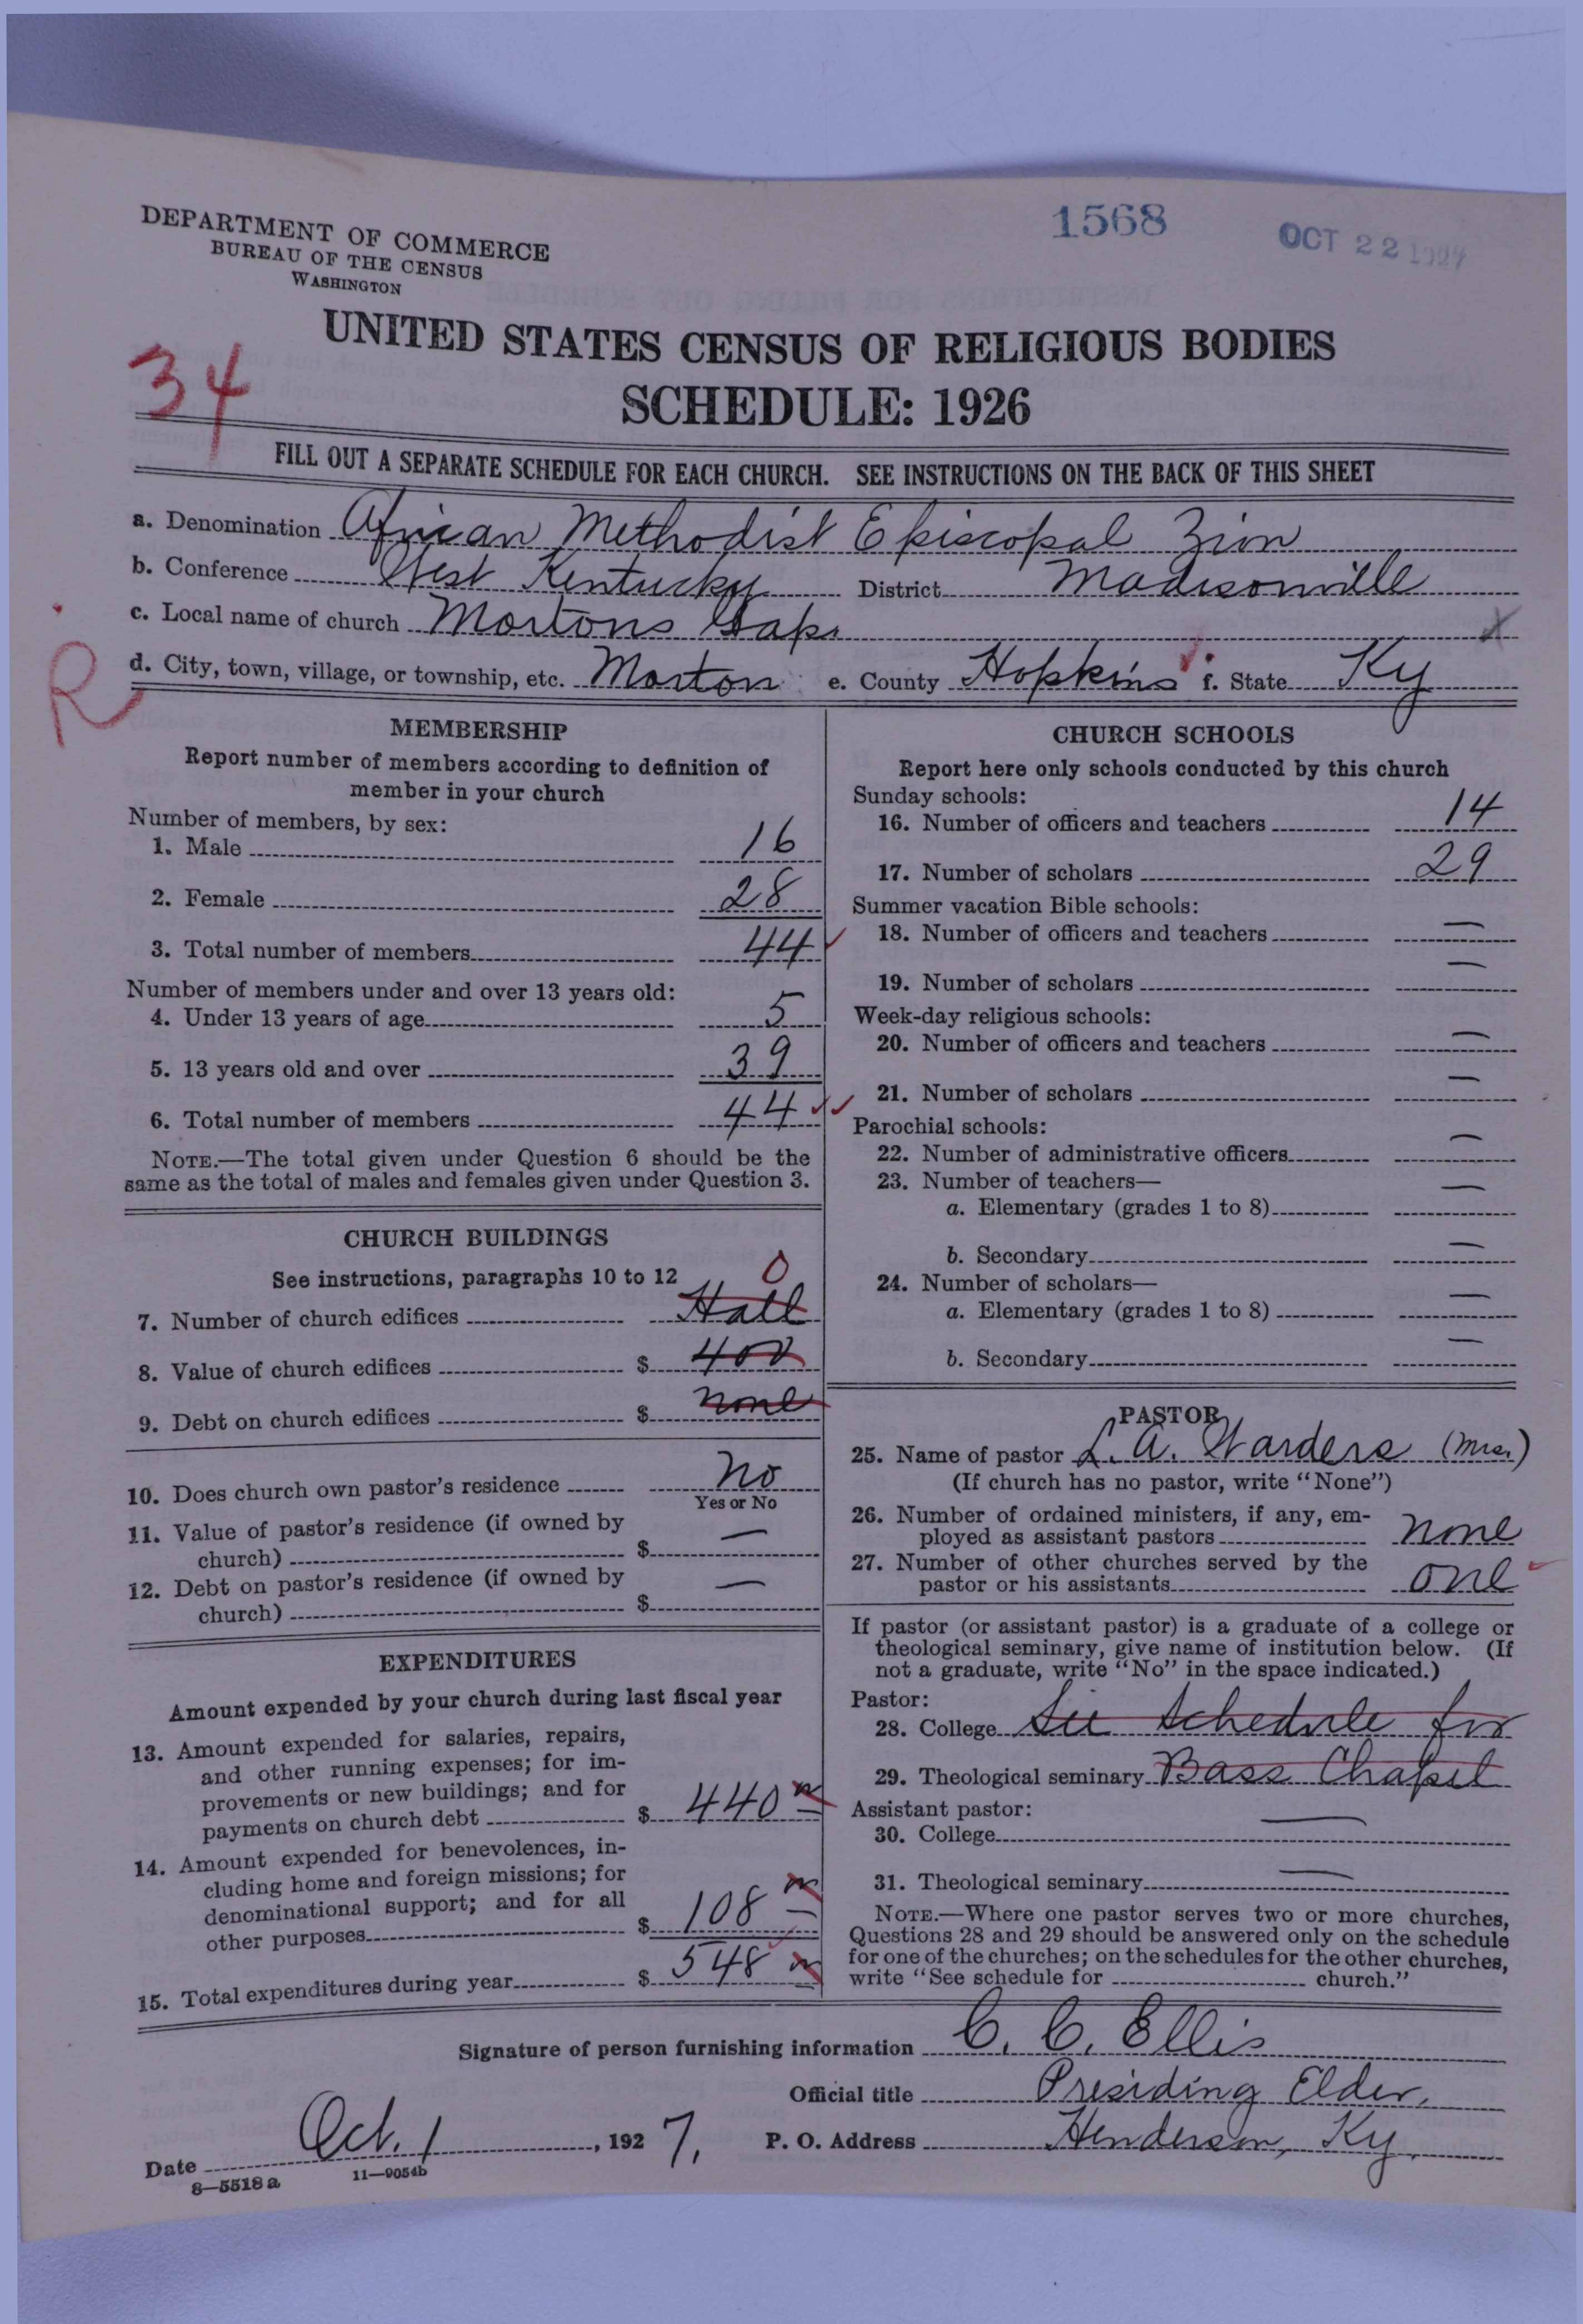 1568
OCT 22 1927
DEPARTMENT OF COMMERCE
BUREAU OF THE CENSUS
WASHINGTON
UNITED STATES CENSUS OF RELIGIOUS BODIES
34
SCHEDULE: 1926
FILL OUT A SEPARATE SCHEDULE FOR EACH CHURCH. SEE INSTRUCTIONS ON THE BACK OF THIS SHEET
a. Denomination African Methodist Episcopal Zion
b. Conference West Kentucky District Madisonville
c. Local name of church Mortons Gap.
R
d. City, town, village, or township, etc. Morton e. County Hopkins f. State Ky
MEMBERSHIP
Report number of members according to definition of
member in your church
Number of members, by sex:
1. Male 16
2. Female 28
3. Total number of members 44
Number of members under and over 13 years old:
4. Under 13 years of age 5
5. 13 years old and over 39
6. Total number of members 44
NOTE.—The total given under Question 6 should be the
same as the total of males and females given under Question 3.
CHURCH BUILDINGS
See instructions, paragraphs 10 to 12
0
7. Number of church edifices Hall
8. Value of church edifices $ 400
9. Debt on church edifices $ none
10. Does church own pastor's residence No
Yes or No
11. Value of pastor's residence (if owned by
church) $ —
12. Debt on pastor's residence (if owned by
church) $ —
EXPENDITURES
Amount expended by your church during last fiscal year
13. Amount expended for salaries, repairs,
and other running expenses; for im-
provements or new buildings; and for
payments on church debt $ 440
14. Amount expended for benevolences, in-
cluding home and foreign missions; for
denominational support; and for all
other purposes $ 108
15. Total expenditures during year $ 548
CHURCH SCHOOLS
Report here only schools conducted by this church
Sunday schools:
16. Number of officers and teachers 14
17. Number of scholars 29
Summer vacation Bible schools:
18. Number of officers and teachers —
19. Number of scholars —
Week-day religious schools:
20. Number of officers and teachers —
21. Number of scholars —
Parochial schools:
22. Number of administrative officers —
23. Number of teachers—
a. Elementary (grades 1 to 8) —
b. Secondary —
24. Number of scholars—
a. Elementary (grades 1 to 8) —
b. Secondary —
PASTOR
25. Name of pastor L. A. Warders (Mrs.)
(If church has no pastor, write "None")
26. Number of ordained ministers, if any, em-
ployed as assistant pastors none
27. Number of other churches served by the
pastor or his assistants one
If pastor (or assistant pastor) is a graduate of a college or
theological seminary, give name of institution below. (If
not a graduate, write "No" in the space indicated.)
Pastor:
28. College See Schedule for
29. Theological seminary Bass Chapel
Assistant pastor:
30. College —
31. Theological seminary —
NOTE.—Where one pastor serves two or more churches,
Questions 28 and 29 should be answered only on the schedule
for one of the churches; on the schedules for the other churches,
write "See schedule for church."
Signature of person furnishing information C. C. Ellis
Official title Presiding Elder,
Date Oct. 1, 1927. P. O. Address Henderson, Ky.
8—5518a 11—9054b